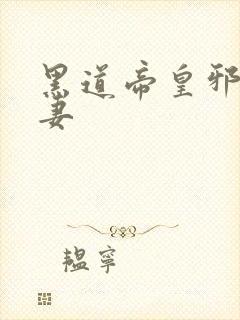 黑道帝皇邪
妻
韫寧